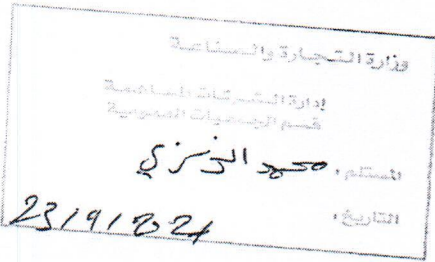 وزارة التجارة والصناعة
إدارة الشركات المساهمة
قسم الجمعيات العمومية
المستلم: محمد
التاريخ: 23/9/2021